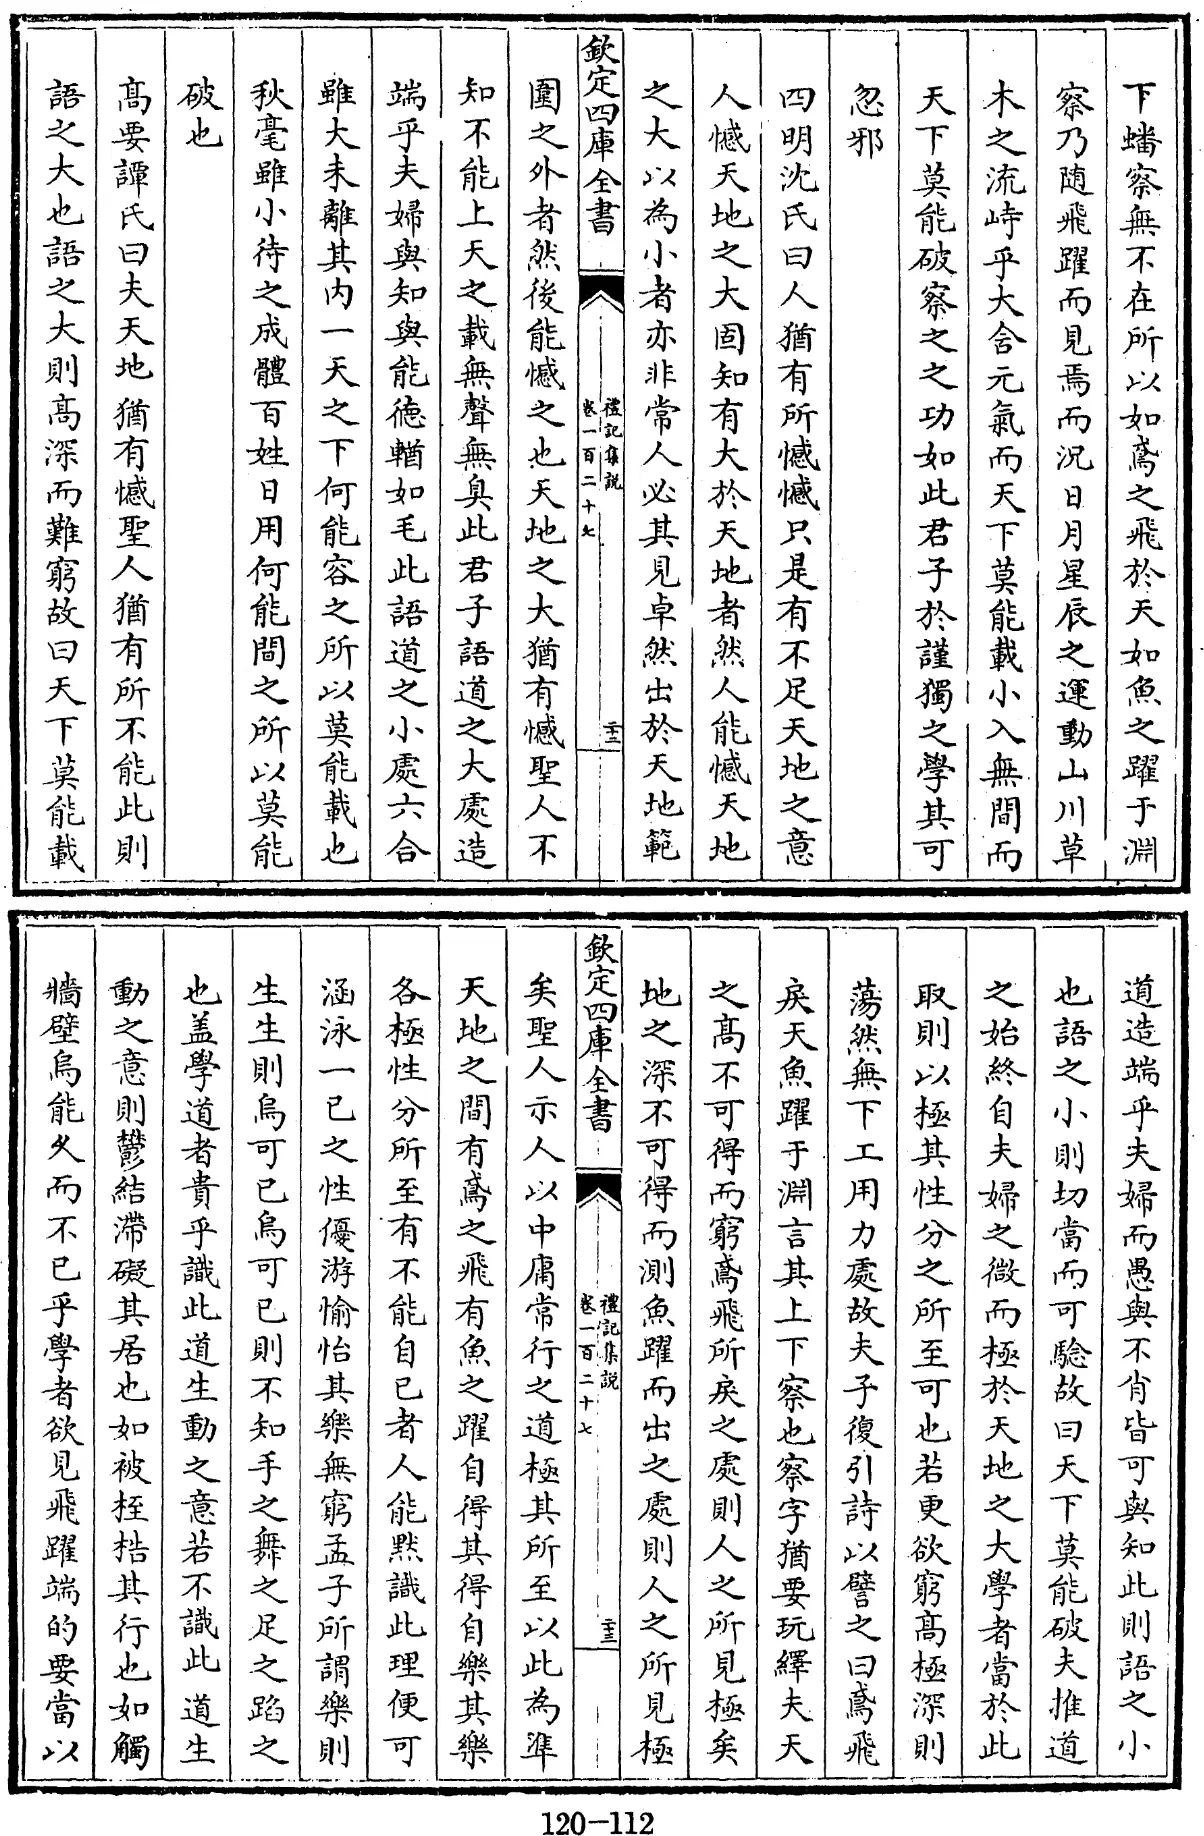 下蟠察無不在所以如鳶之飛於天如魚之躍于淵
察乃随飛躍而見焉而況日月星辰之運動山川草
木之流峙乎大含元氣而天下莫能載小入無間而
天下莫能破察之之功如此君子於謹獨之學其可
忽邪
四明沈氏曰人猶有所憾憾只是有不足天地之意
人憾天地之大固知有大於天地者然人能憾天地
之大以為小者亦非常人必其見卓然出於天地範
欽定四庫全書
禮記集説
卷一百二十七
二十二
圍之外者然後能憾之也天地之大猶有憾聖人不
知不能上天之載無聲無臭此君子語道之大處造
端乎夫婦與知與能德輶如毛此語道之小處六合
雖大未離其内一天之下何能容之所以莫能載也
秋毫雖小待之成體百姓日用何能間之所以莫能
破也
髙要譚氏曰夫天地猶有憾聖人猶有所不能此則
語之大也語之大則髙深而難窮故曰天下莫能載
道造端乎夫婦而愚與不肖皆可與知此則語之小
也語之小則切當而可驗故曰天下莫能破夫推道
之始終自夫婦之微而極於天地之大學者當於此
取則以極其性分之所至可也若更欲窮髙極深則
蕩然無下工用力處故夫子復引詩以譬之曰鳶飛
戾天魚躍于淵言其上下察也察字猶要玩繹夫天
之髙不可得而窮鳶飛所戾之處則人之所見極矣
地之深不可得而測魚躍而出之處則人之所見極
欽定四庫全書
禮記集説
卷一百二十七
二十三
矣聖人示人以中庸常行之道極其所至以此為準
天地之間有鳶之飛有魚之躍自得其得自樂其樂
各極性分所至有不能自已者人能黙識此理便可
涵泳一已之性優游愉怡其樂無窮孟子所謂樂則
生生則烏可已烏可已則不知手之舞之足之蹈之
也盖學道者貴乎識此道生動之意若不識此道生
動之意則鬱結滯礙其居也如被桎梏其行也如觸
牆壁烏能久而不已乎學者欲見飛躍端的要當以
120-112